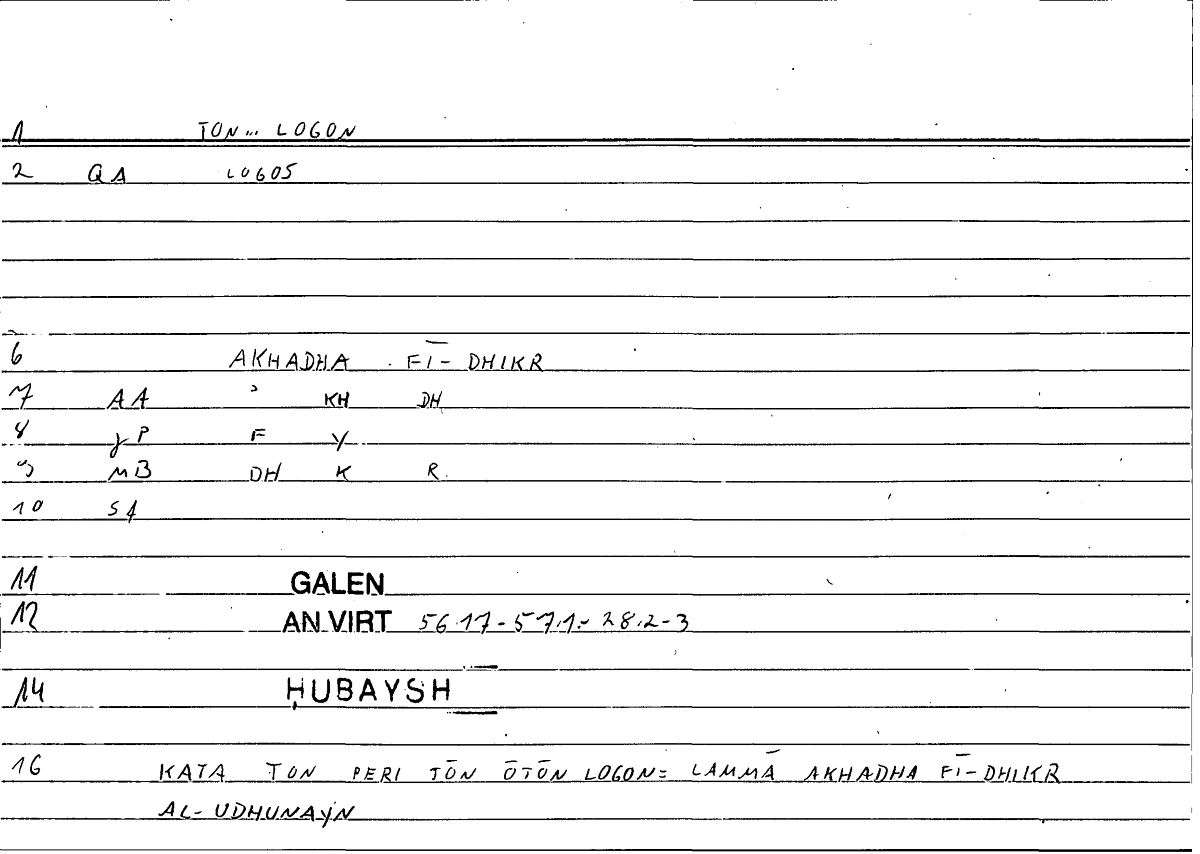 1 TON... LOGON
2 QA LOGOS
6 AKHADHA FĪ-DHIKR
7 AA ʾ KH DH
8 γP F Y
9 MB DH K R
10 SA
11 GALEN
12 AN VIRT 56.17-57.1:- 28.2-3
14 ḤUBAYSH
16 KATA TON PERI TŌN ŌTŌN LOGON= LAMMĀ AKHADHA FĪ-DHIKR
AL-UDHUNAYN